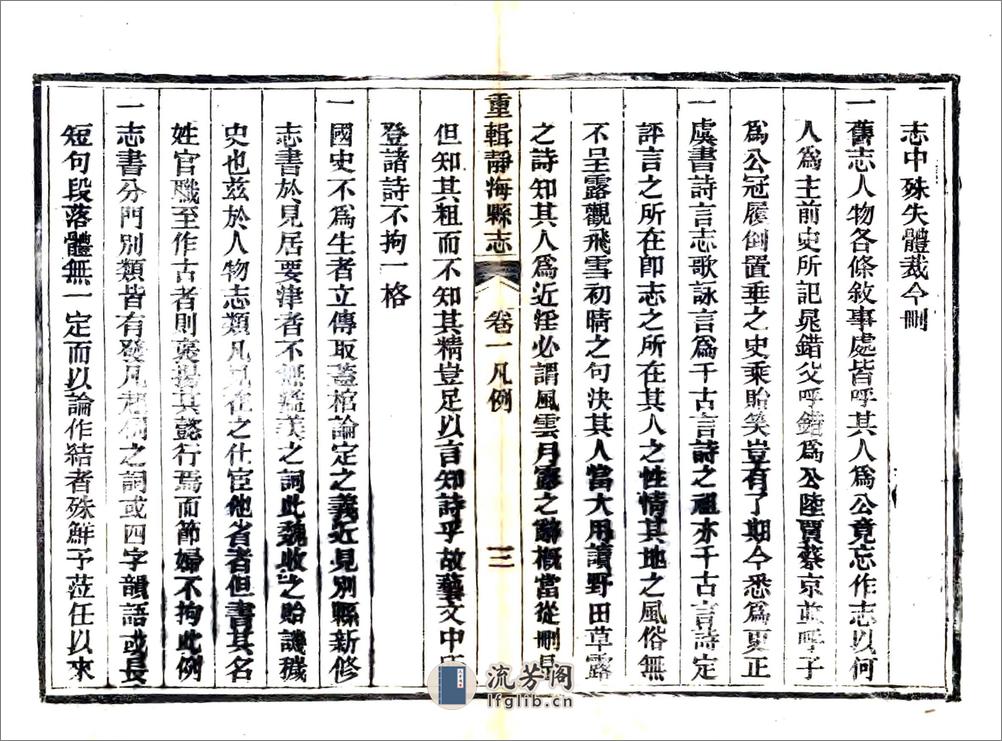 志中殊失體裁今刪
一舊志人物各條敘事處皆呼其人爲公竟忘作志以何
人爲主前史所記晁錯父呼錯爲公陸賈蔡京並呼子
爲公冠履倒置垂之史乘貽笑豈有了期今悉爲更正
一虞書詩言志歌詠言爲千古言詩之祖亦千古言詩定
評言之所在即志之所在其人之性情其地之風俗無
不呈露觀飛雪初晴之句決其人當大用讀野田草露
之詩知其人爲近淫必謂風雲月露之辭概當從刪是
重輯靜海縣志 卷一凡例 三
但知其粗而不知其精豈足以言知詩乎故藝文中所
登諸詩不拘一格
一國史不爲生者立傳取蓋棺論定之義近見別縣新修
志書於見居要津者不無溢美之詞此魏收之貽譏穢
史也茲於人物志類凡見在之仕宦他省者但書其名
姓官職至作古者則褒揚其懿行焉而節婦不拘此例
一志書分門別類皆有發凡起例之詞或四字韻語或長
短句段落體無一定而以論作結者殊鮮予蒞任以來
流芳閣
lfglib.cn